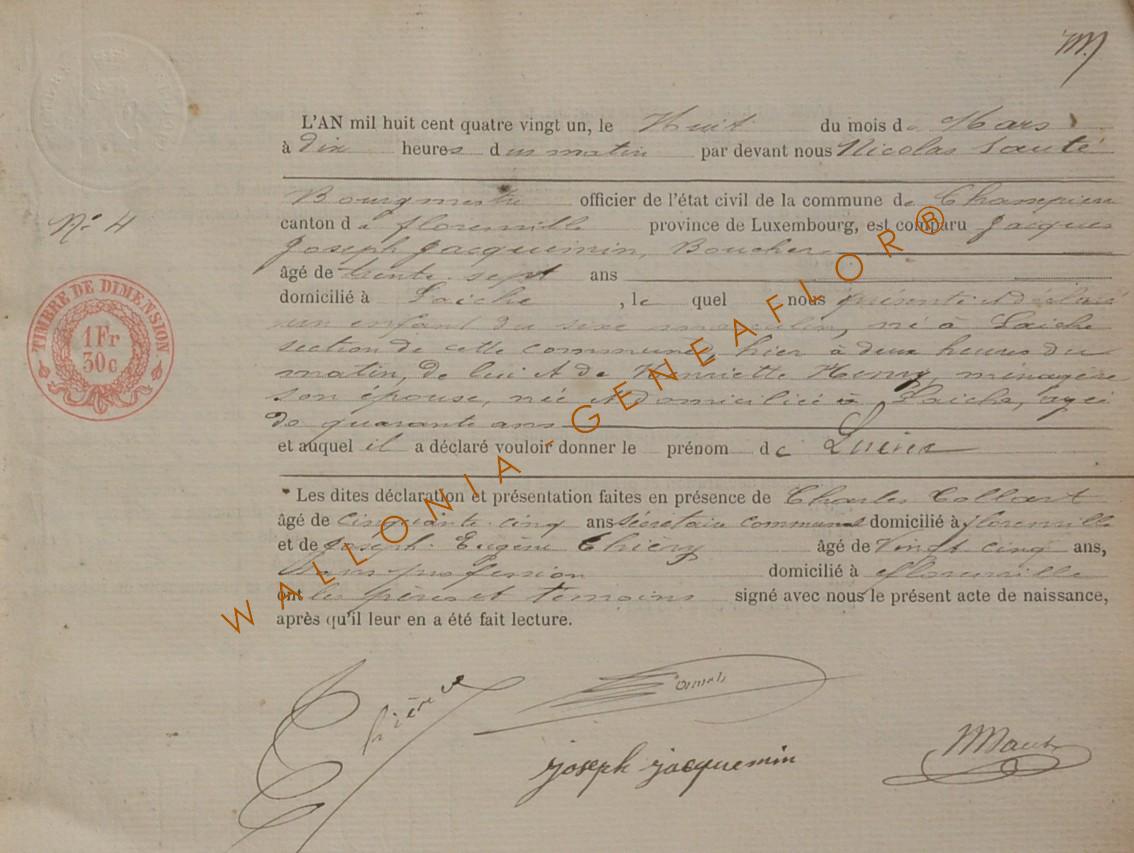 M
L'AN mil huit cent quatre vingt un, le Huit du mois de Mars
à dix heures du matin par devant nous Nicolas
Bourgmestre officier de l'état civil de la commune de
canton de florenville province de Luxembourg, est comparu Jacques
N° 4
Joseph Jacquemin, Boucher
âgé de trente sept ans
domicilié à Laiche, le quel nous présente et déclare
un enfant du sexe masculin, né à Laiche
section de cette commune, hier à deux heures du
matin, de lui et de Henriette Henry, ménagère
son épouse, née et domiciliée à Laiche, agée
de quarante ans
et auquel il a déclaré vouloir donner le prénom de
Les dites déclaration et présentation faites en présence de Charles Collart
âgé de cinquante cinq ans sécrétaire communal domicilié à florenville
et de Joseph Eugène Thiéry âgé de vingt cinq ans,
sans profession domicilié à florenville
ont les pères et témoins signé avec nous le présent acte de naissance,
après qu'il leur en a été fait lecture.
TIMBRE DE DIMENSION
1Fr
30c
joseph jacquemin
WALLONIA-GENEAFLOR®